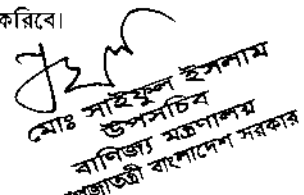 করিবে।
মোঃ সাইফুল ইসলাম
উপসচিব
বাণিজ্য মন্ত্রণালয়
গণপ্রজাতন্ত্রী বাংলাদেশ সরকার